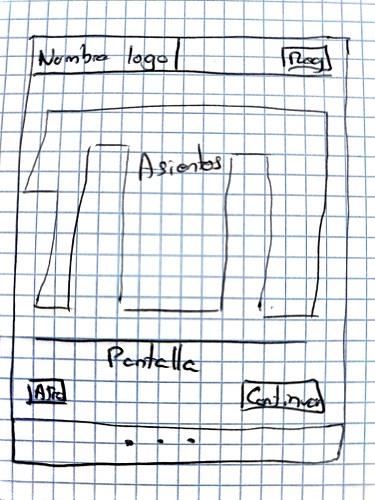 Nombre logo Reg
Asientos
Pantalla
Atrá Continuar